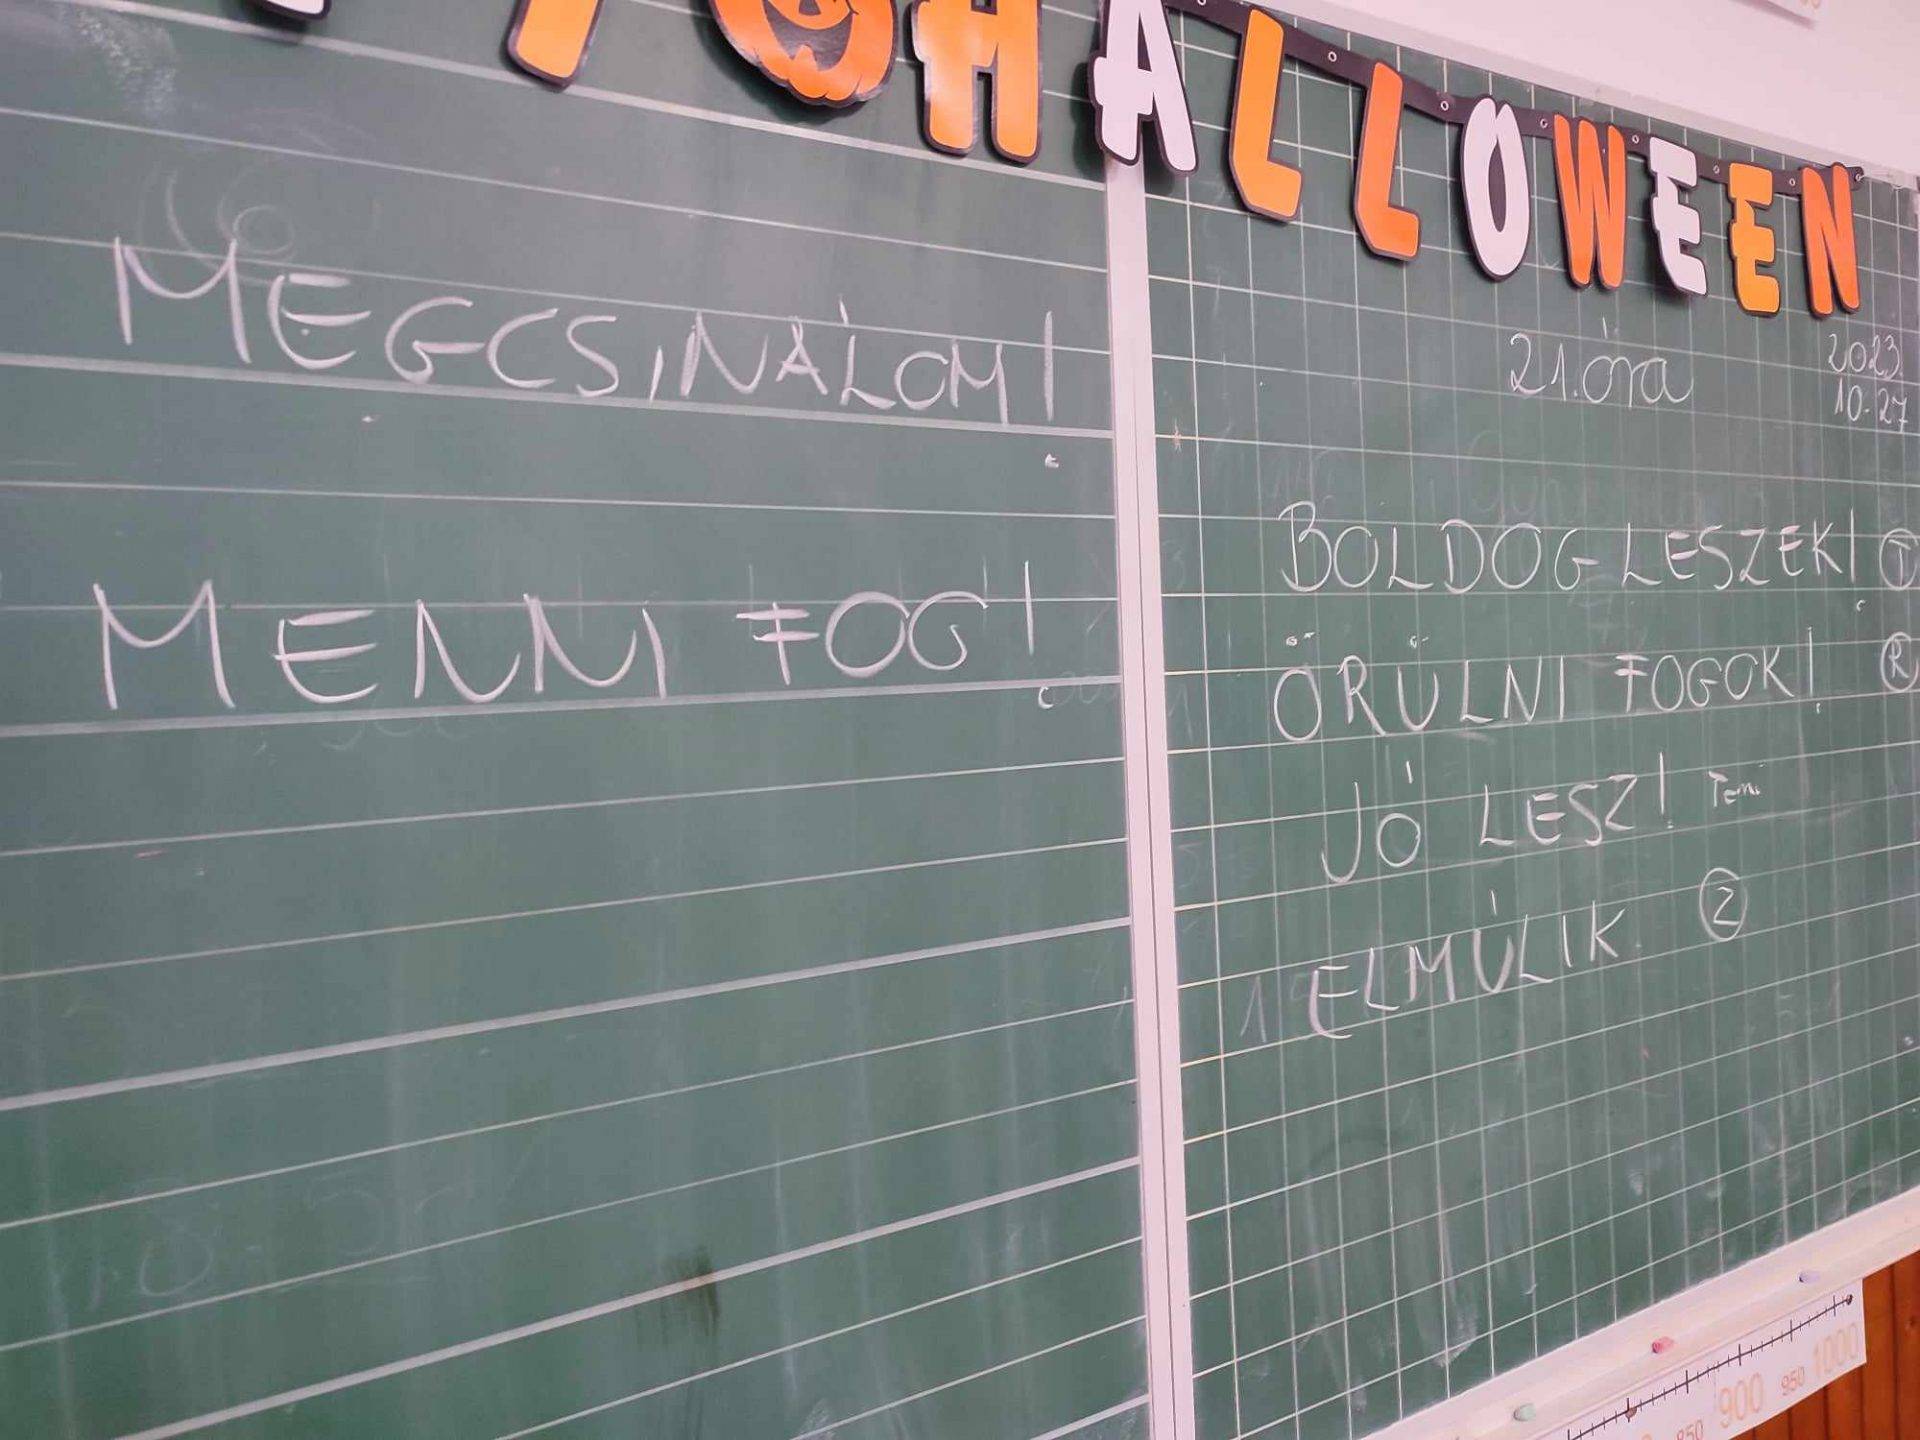 HALLOWEEN
MEGCSINÁLOM!
MENNI FOG!
21. óra
2023.
10.27
BOLDOG LESZEK! T
ÖRÜLNI FOGOK! R
JÓ LESZ! Temi
ELMÚLIK Z
850 900 950 1000